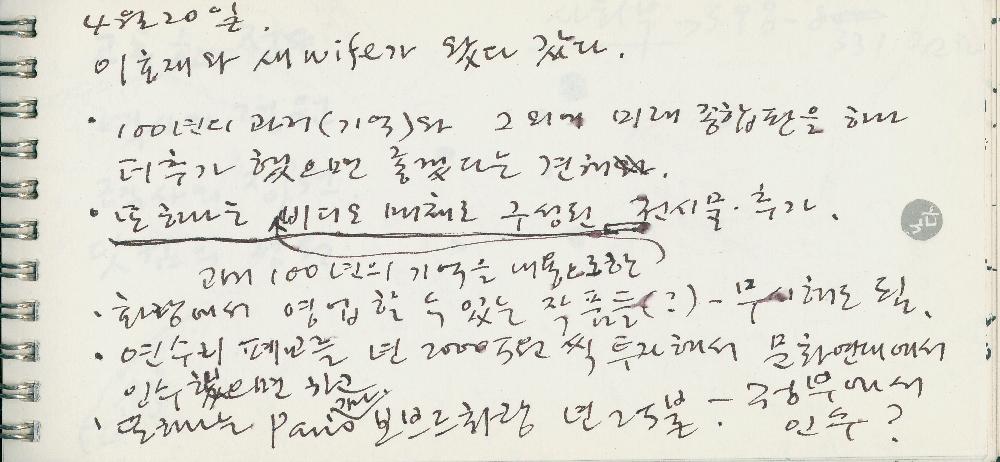 4월 20일.
이호재와 새 wife가 왔다 갔다.
· 100년의 과거(기억)와 그 외에 미래 종합판을 하나
더 추가 했으면 좋겠다는 견해.
· 또 하나는 비디오 매체로 구성된 전시물. 추가.
과거 100년의 기억을 내용으로한
· 화랑에서 영업 할 수 있는 작품들(?) – 무시해도 됨.
· 연수리 폐교를 년 2000만원 씩 투자해서 문화연대에서
인수했으면 하고.
· 또 하나는 Paris 보브르화랑 년 2만불 – 정부에서
인수?